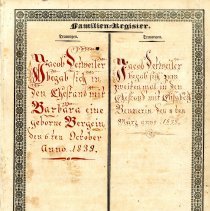 Familien-Register.
Trauungen. Trauungen.
Jacob Detweiler
Begab sich in
den Ehestand mit
Barbara eine
geborne Bergein
den 6ten October
Anno. 1832.
Jacob Detweiler
Begab sich zum
zweiten mal in den
Ehestand mit Elisabeth
den
Merz anno. 1838.